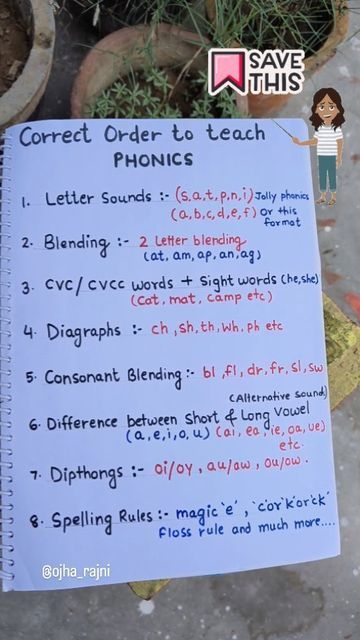 SAVE
THIS
Correct Order to teach
PHONICS
1. Letter Sounds :- (s,a,t,p,n,i) Jolly phonics
(a,b,c,d,e,f) Or this
format
2. Blending :- 2 Letter blending
(at, am, ap, an, ag)
3. CVC/CVCC words + Sight words (he,she)
(Cat, mat, camp etc)
4. Diagraphs :- ch, sh, th, wh, ph etc
5. Consonant Blending :- bl, fl, dr, fr, sl, sw
(Alternative sound)
6. Difference between Short & Long Vowel
(a,e,i,o,u) (ai, ea, ie, oa, ue)
etc.
7. Dipthongs :- oi/oy, au/aw, ou/ow.
8. Spelling Rules :- magic 'e', 'c'or'k'or'ck'
Floss rule and much more....
@ojha_rajni